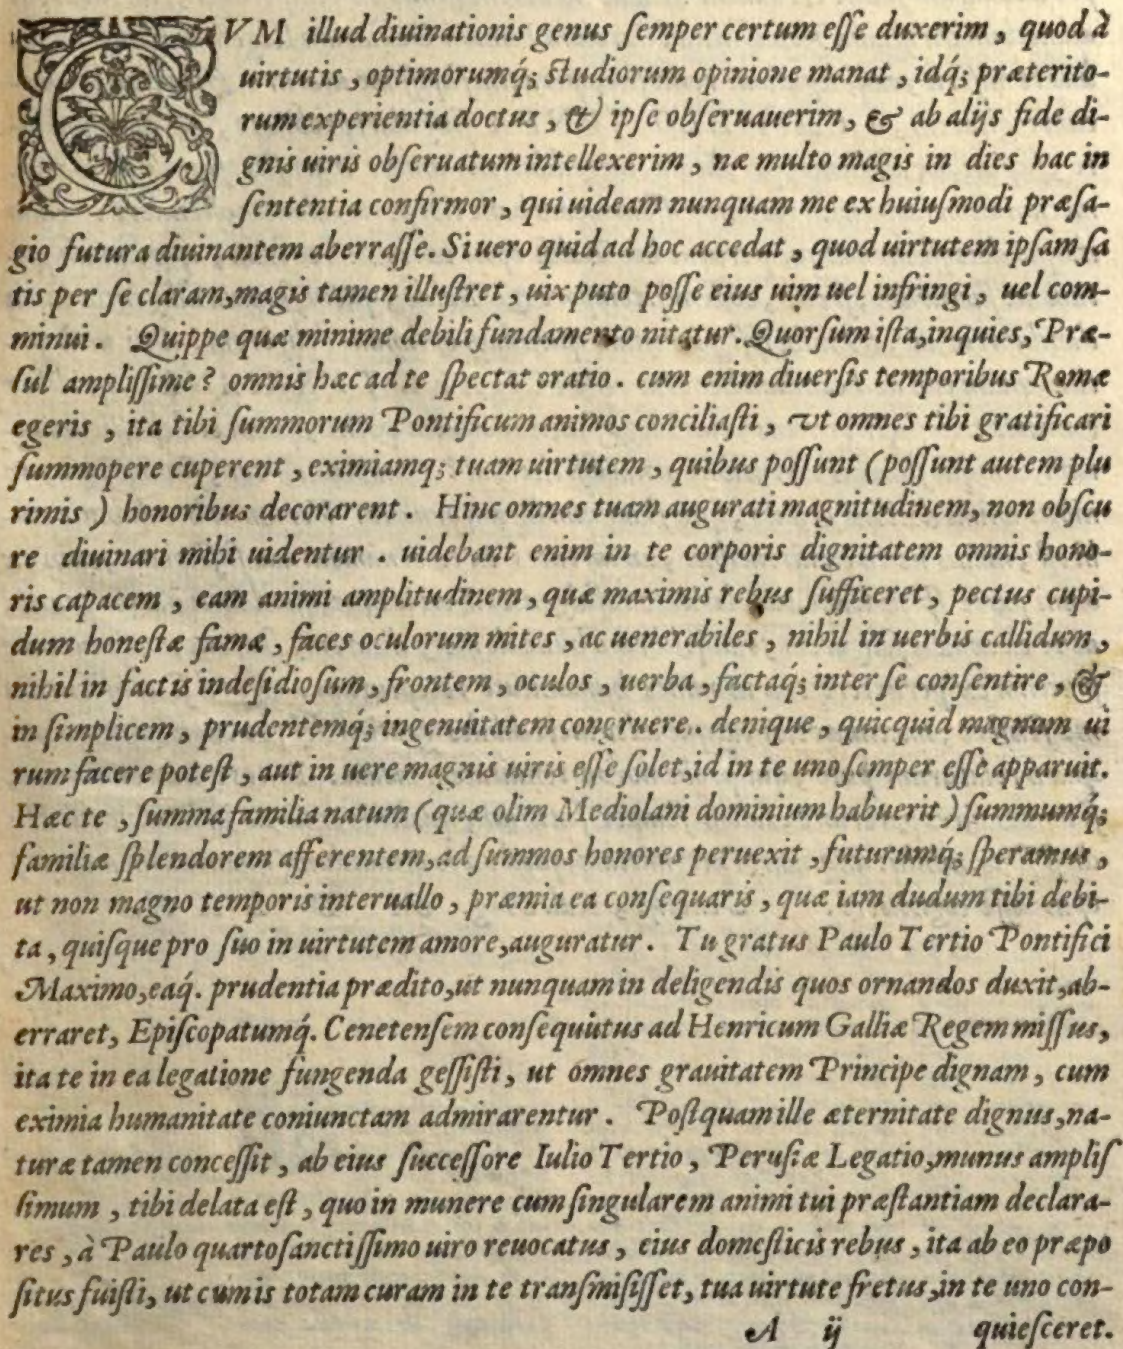 CVM illud diuinationis genus ſemper certum eſſe duxerim, quod à
uirtutis, optimorumq́; ſtudiorum opinione manat, idq́; præterito-
rum experientia doctus, & ipſe obſeruauerim, & ab alijs fide di-
gnis uiris obſeruatum intellexerim, næ multo magis in dies hac in
ſententia confirmor, qui uideam nunquam me ex huiuſmodi præſa-
gio futura diuinantem aberraſſe. Si uero quid ad hoc accedat, quod uirtutem ipſam ſa
tis per ſe claram, magis tamen illuſtret, uix puto poſſe eius uim uel infringi, uel com-
minui. Quippe quæ minime debili fundamento nitatur. Quorſum iſta, inquies, Præ-
ſul ampliſſime? omnis hæc ad te ſpectat oratio. cum enim diuerſis temporibus Romæ
egeris, ita tibi ſummorum Pontificum animos conciliaſti, vt omnes tibi gratificari
ſummopere cuperent, eximiamq; tuam uirtutem, quibus poſſunt (poſſunt autem plu
rimis) honoribus decorarent. Hinc omnes tuam augurati magnitudinem, non obſcu
re diuinari mihi uidentur. uidebant enim in te corporis dignitatem omnis hono-
ris capacem, eam animi amplitudinem, quæ maximis rebus ſufficeret, pectus cupi-
dum honeſtæ famæ, faces oculorum mites, ac uenerabiles, nihil in uerbis callidum,
nihil in factis indeſidioſum, frontem, oculos, uerba, factaq́; inter ſe conſentire, &
in ſimplicem, prudentemq́; ingenuitatem congruere. denique, quicquid magnum ui
rum facere poteſt, aut in uere magnis uiris eſſe ſolet, id in te uno ſemper eſſe apparuit.
Hæc te, ſumma familia natum (quæ olim Mediolani dominium habuerit) ſummumq́;
familiæ ſplendorem afferentem, ad ſummos honores peruexit, futurumq́; ſperamus,
ut non magno temporis interuallo, præmia ea conſequaris, quæ iam dudum tibi debi-
ta, quiſque pro ſuo in uirtutem amore, auguratur. Tu gratus Paulo Tertio Pontifici
Maximo, eaq́. prudentia prædito, ut nunquam in deligendis quos ornandos duxit, ab-
erraret, Epiſcopatumq́. Cenetenſem conſequùtus ad Henricum Galliæ Regem miſſus,
ita te in ea legatione fungenda geſſiſti, ut omnes grauitatem Principe dignam, cum
eximia humanitate coniunctam admirarentur. Poſtquam ille æternitate dignus, na-
turæ tamen conceſſit, ab eius ſucceſſore Iulio Tertio, Peruſiæ Legatio, munus ampliſ
ſimum, tibi delata eſt, quo in munere cum ſingularem animi tui præſtantiam declara-
res, à Paulo quarto ſanctiſſimo uiro reuocatus, eius domeſticis rebus, ita ab eo præpo
ſitus fuiſti, ut cum is totam curam in te tranſmiſiſſet, tua uirtute fretus, in te uno con-
A ij quieſceret.